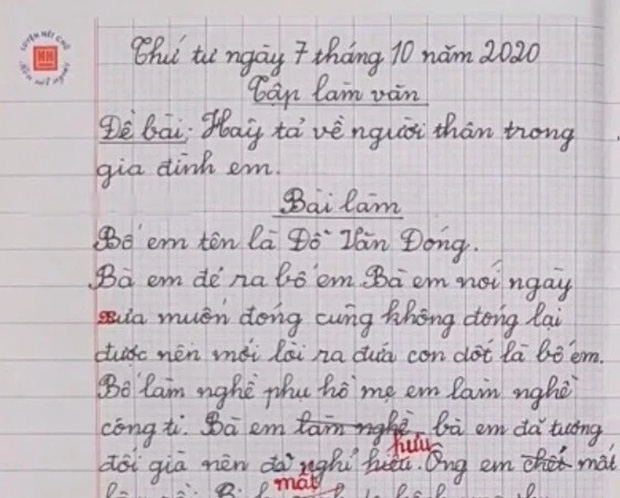 LUYỆN NÉT CHỮ
RÈN NẾT NGƯỜI
Thứ tư ngày 7 tháng 10 năm 2020
Tập làm văn
Đề bài: Hãy tả về người thân trong
gia đình em.
Bài làm
Bố em tên là Đỗ Văn Đóng.
Bà em đẻ ra bố em Bà em nói ngày
xưa muốn đóng cũng không đóng lại
được nên mới lòi ra đứa con dốt là bố em.
Bố làm nghề phụ hồ mẹ em làm nghề
công ti. Bà em làm nghề bà em đã tương
đối già nên đã nghỉ hiêu. hưu Ông em chết mất
mất